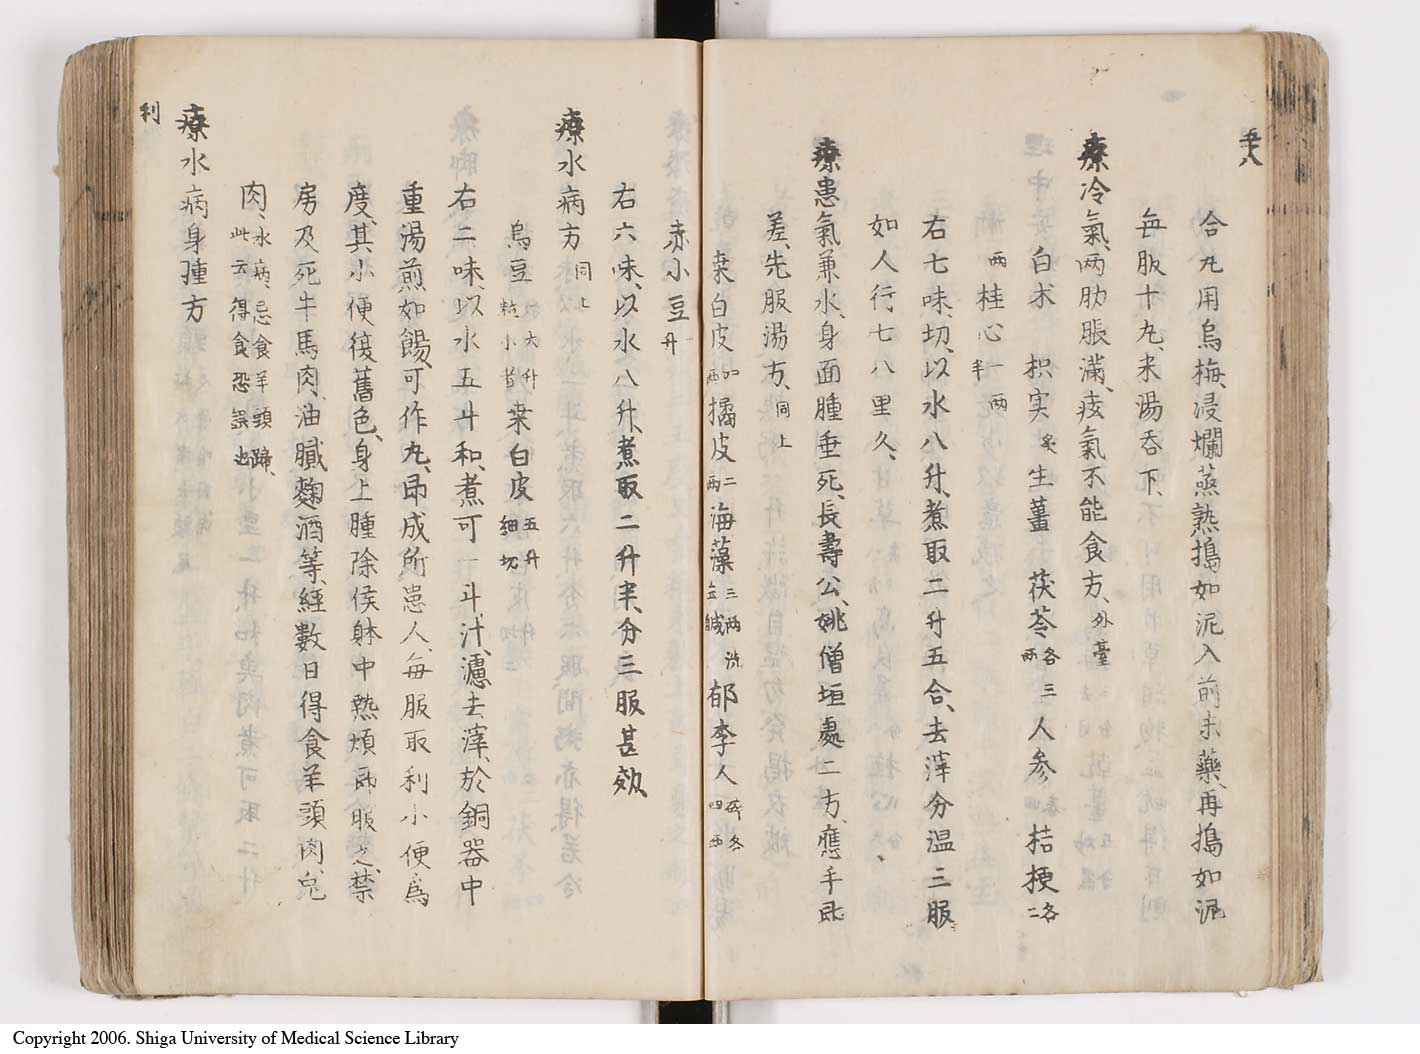 五八
合丸用烏梅、浸爛蒸熟搗如泥入前末藥、再搗如泥
毎服十丸、米湯呑下、
療冷氣、兩肋脹滿、痰氣不能食方、外臺
白术 枳実炙 生薑 茯苓各三兩 人参 桔梗各二
兩 桂心一兩半
右七味、切、以水八升、煮取二升五合、去滓分温三服
如人行七八里久、
療患氣兼水、身面腫垂死、長壽公、姚僧垣處二方、應手即
差、先服湯方、同上
桒白皮 橘皮二兩 海藻三兩洗去鹹 郁李人四兩
赤小豆升
右六味、以水八升、煮取二升半、分三服甚効
療水病方同上
烏豆大升 桒白皮五升細切
右二味、以水五斗和、煮可一斗、汁、濾去滓、於銅器中
重湯煎、如餳、可作丸、即成所患人、毎服取利小便爲
度、其小便復舊色、身上腫除侯躰中熱煩即服之、禁
房及死牛馬肉、油膩麹酒等、經數日得食羊頭肉、兔
肉、水病、忌食羊頭蹄、此云得食恐誤也
療水病身腫方
利